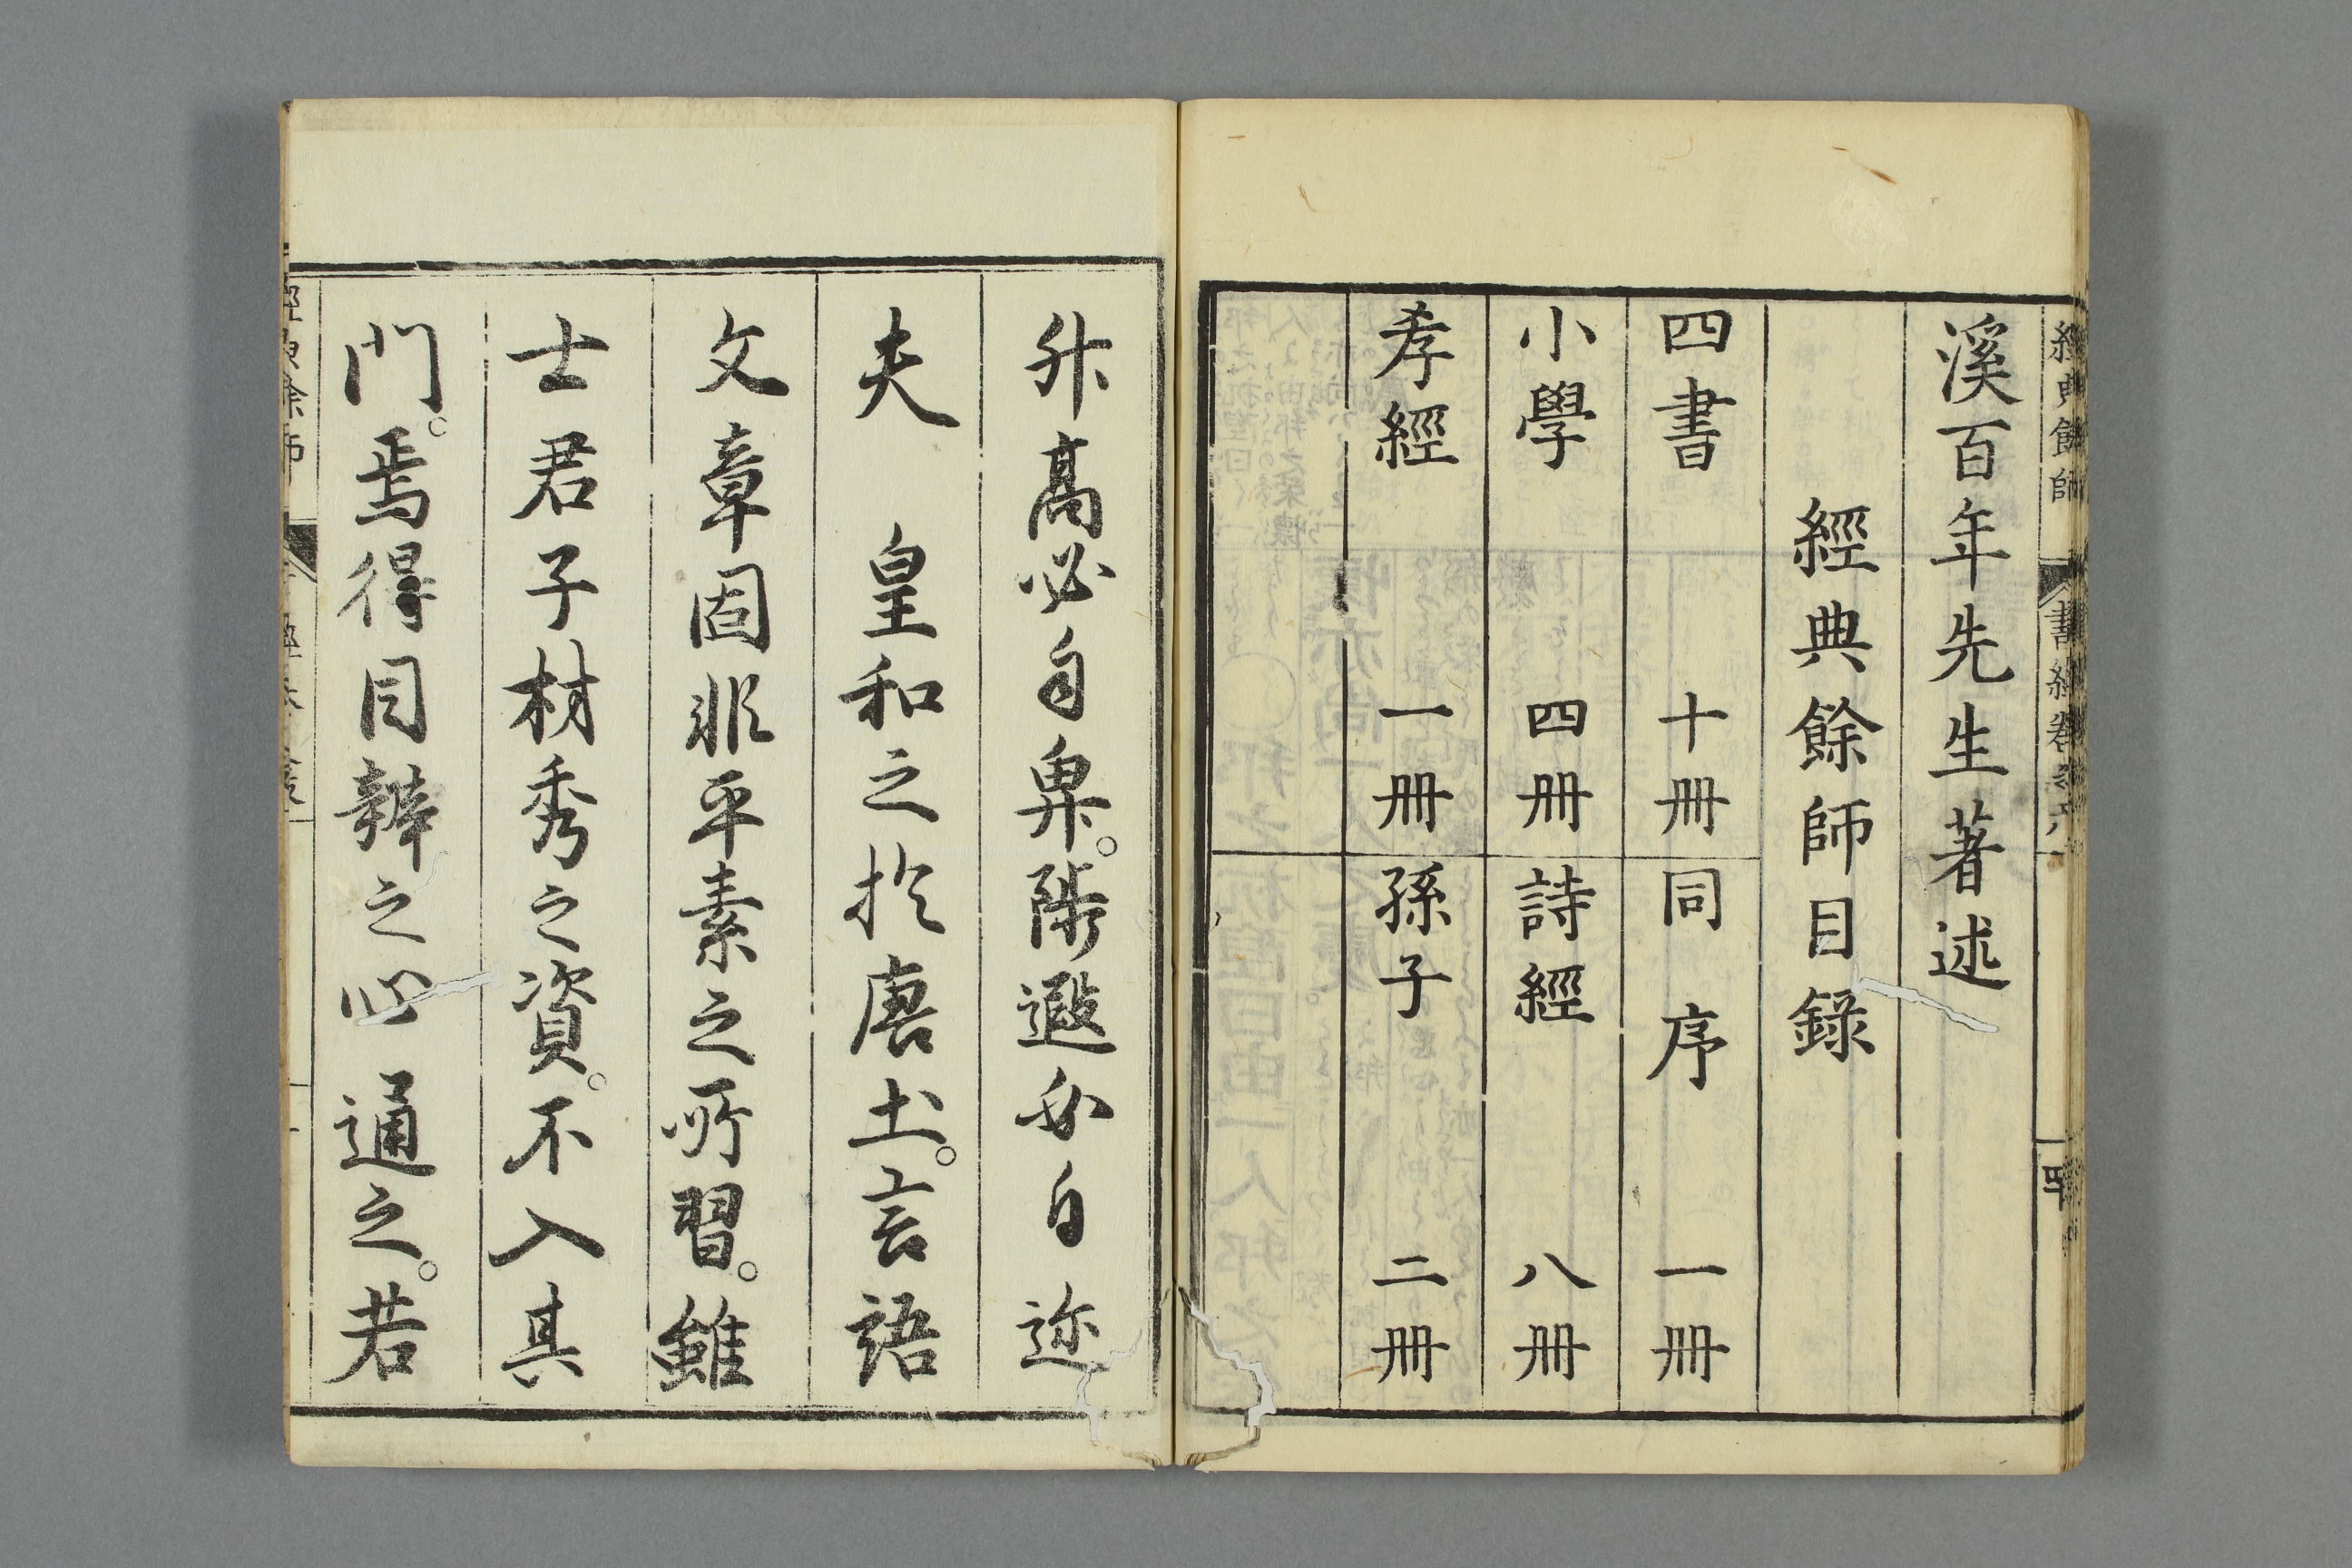 經典餘師
書經卷之六
溪百年先生著述
經典餘師目録
四書 十冊 同序 一冊
小學 四冊 詩經 八冊
孝經 一冊 孫子 二冊
升髙必自卑。陟遐必自迩
夫 皇和之於唐土。言語
文章固非平素之所習。雖
士君子材秀之資。不入其
門。焉得目辨之心通之。若